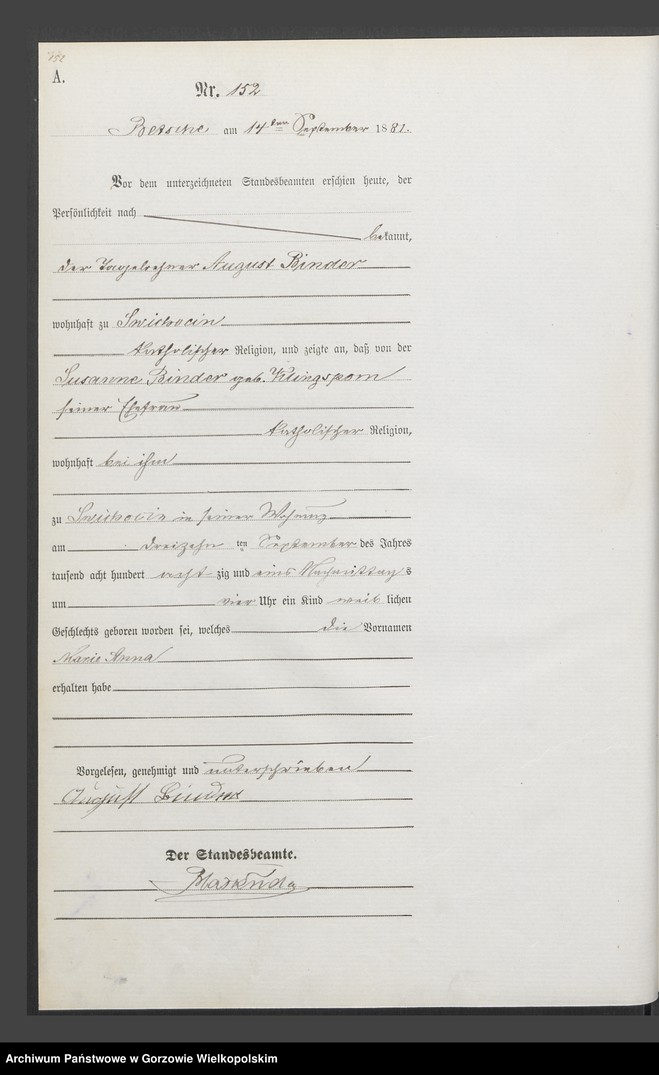 152
A.
Nr. 152
Betsche am 14ten September 1881.
Vor dem unterzeichneten Standesbeamten erschien heute, der
Persönlichkeit nach
bekannt,
der Tagelöhner August Binder
wohnhaft zu Swichocin
katholischer Religion, und zeigte an, daß von der
Susanne Binder geb. Klingsporn
seiner Ehefrau
katholischer Religion,
wohnhaft bei ihm
zu Swichocin in seiner Wohnung
am dreizehn ten September des Jahres
tausend acht hundert acht zig und eins Nachmittag s
um vier Uhr ein Kind weib lichen
Geschlechts geboren worden sei, welches die Vornamen
Marie Anna
erhalten habe
Vorgelesen, genehmigt und unterschrieben
August Binder
Der Standesbeamte.
Archiwum Państwowe w Gorzowie Wielkopolskim